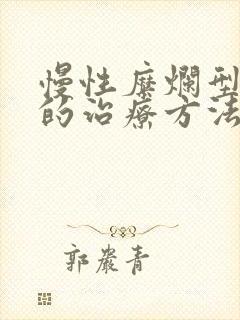 慢性糜爛型
的治療方法
郭嚴青